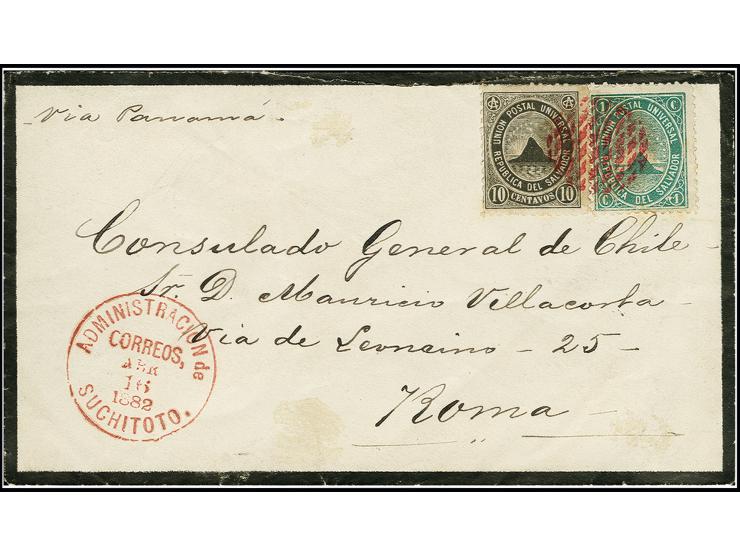 Via Panamá.
UNION POSTAL UNIVERSAL
REPUBLICA DEL SALVADOR
10 CENTAVOS 10
1 C
UNION POSTAL UNIVERSAL
REPUBLICA DEL SALVADOR
C 1
Consulado General de Chile
Sr. D. Mauricio Villacorta
Via de Leoncino - 25 -
Roma
ADMINISTRACION de
CORREOS,
ABR
16
1882
SUCHITOTO.